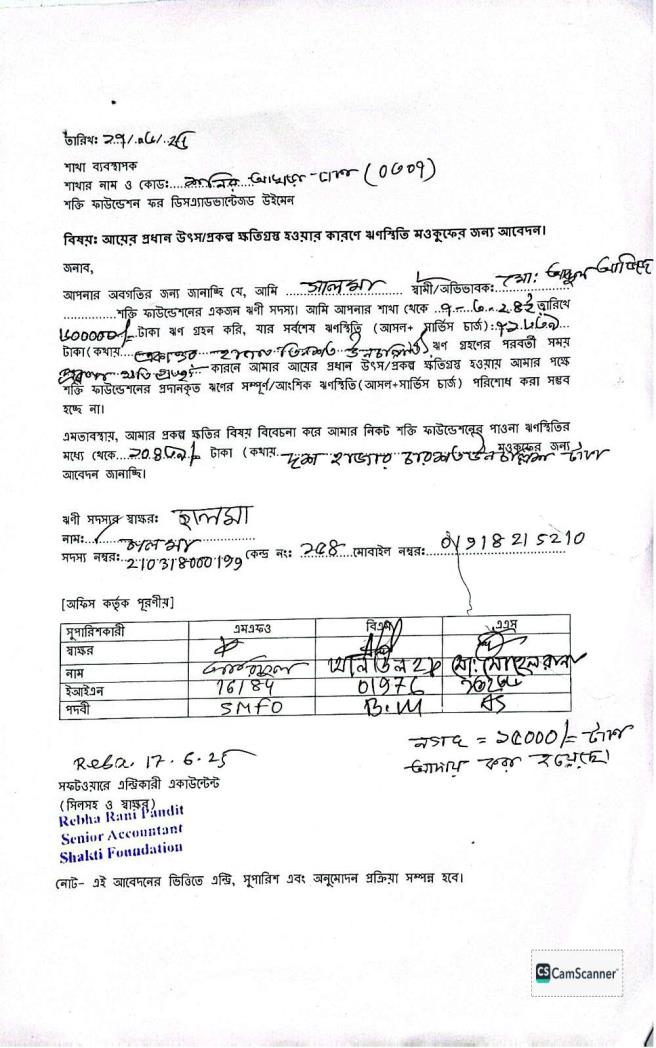 তারিখ:
শাখা ব্যবস্থাপক
শাখার নাম ও কোডঃ.... (0309)
শক্তি ফাউন্ডেশন ফর ডিসএ্যাডভান্টেজড উইমেন
বিষয়ঃ আয়ের প্রধান উৎস/প্রকল্প ক্ষতিগ্রস্ত হওয়ার কারণে ঋণস্থিতি মওকুফের জন্য আবেদন।
জনাব,
আপনার অবগতির জন্য জানাচ্ছি যে, আমি সালমা স্বামী/অভিভাবক: মো:
শক্তি ফাউন্ডেশনের একজন ঋণী সদস্য। আমি আপনার শাখা থেকে তারিখে
টাকা ঋণ গ্রহন করি, যার সর্বশেষ ঋণস্থিতি (আসল+ সার্ভিস চার্জ):
টাকা (কথায় হাজার তিনশত ঋণ গ্রহণের পরবর্তী সময়
কারনে আমার আয়ের প্রধান উৎস/প্রকল্প ক্ষতিগ্রস্ত হওয়ায় আমার পক্ষে
শক্তি ফাউন্ডেশনের প্রদানকৃত ঋণের সম্পূর্ণ/আংশিক ঋণস্থিতি(আসল+সার্ভিস চার্জ) পরিশোধ করা সম্ভব
হচ্ছে না।
এমতাবস্থায়, আমার প্রকল্প ক্ষতির বিষয় বিবেচনা করে আমার নিকট শক্তি ফাউন্ডেশনের পাওনা ঋণস্থিতির
মধ্যে থেকে টাকা (কথায় দশ হাজার চারশত টাকা মওকুফের জন্য
আবেদন জানাচ্ছি।
ঋণী সদস্যর স্বাক্ষর: ছালমা
নাম: সালমা
সদস্য নম্বর: 210318000199 কেন্দ্র নং: মোবাইল নম্বর: 01918215210
[অফিস কর্তৃক পূরণীয়]
সুপারিশকারী এমএফও বিএম এএস
স্বাক্ষর
নাম মো: সোহেল রানা
ইআইএন 16184 01976
পদবী SMFO B.M AS
নগদ = ১৫০০০/= টাকা
আদায় করা হয়েছে।
Reba. 17.6.25
সফটওয়ারে এন্ট্রিকারী একাউন্টেন্ট
(সিলসহ ও স্বাক্ষর)
Rebha Rani Pandit
Senior Accountant
Shakti Foundation
নোট- এই আবেদনের ভিত্তিতে এন্ট্রি, সুপারিশ এবং অনুমোদন প্রক্রিয়া সম্পন্ন হবে।
CS CamScanner